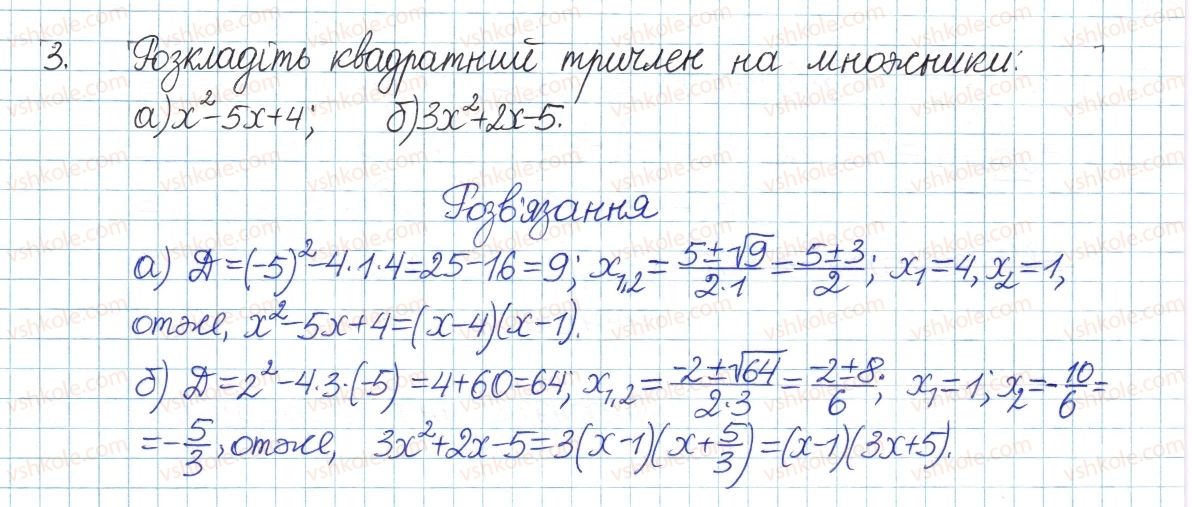 3. Розкладіть квадратний тричлен на множники:
а) x²-5x+4; б) 3x²+2x-5.
Розв'язання
а) Д=(-5)²-4·1·4=25-16=9; x₁,₂=(5±√9)/(2·1)=(5±3)/2; x₁=4, x₂=1,
отже, x²-5x+4=(x-4)(x-1).
б) Д=2²-4·3·(-5)=4+60=64; x₁,₂=(-2±√64)/(2·3)=(-2±8)/6; x₁=1; x₂=-10/6=
=-5/3, отже, 3x²+2x-5=3(x-1)(x+5/3)=(x-1)(3x+5).